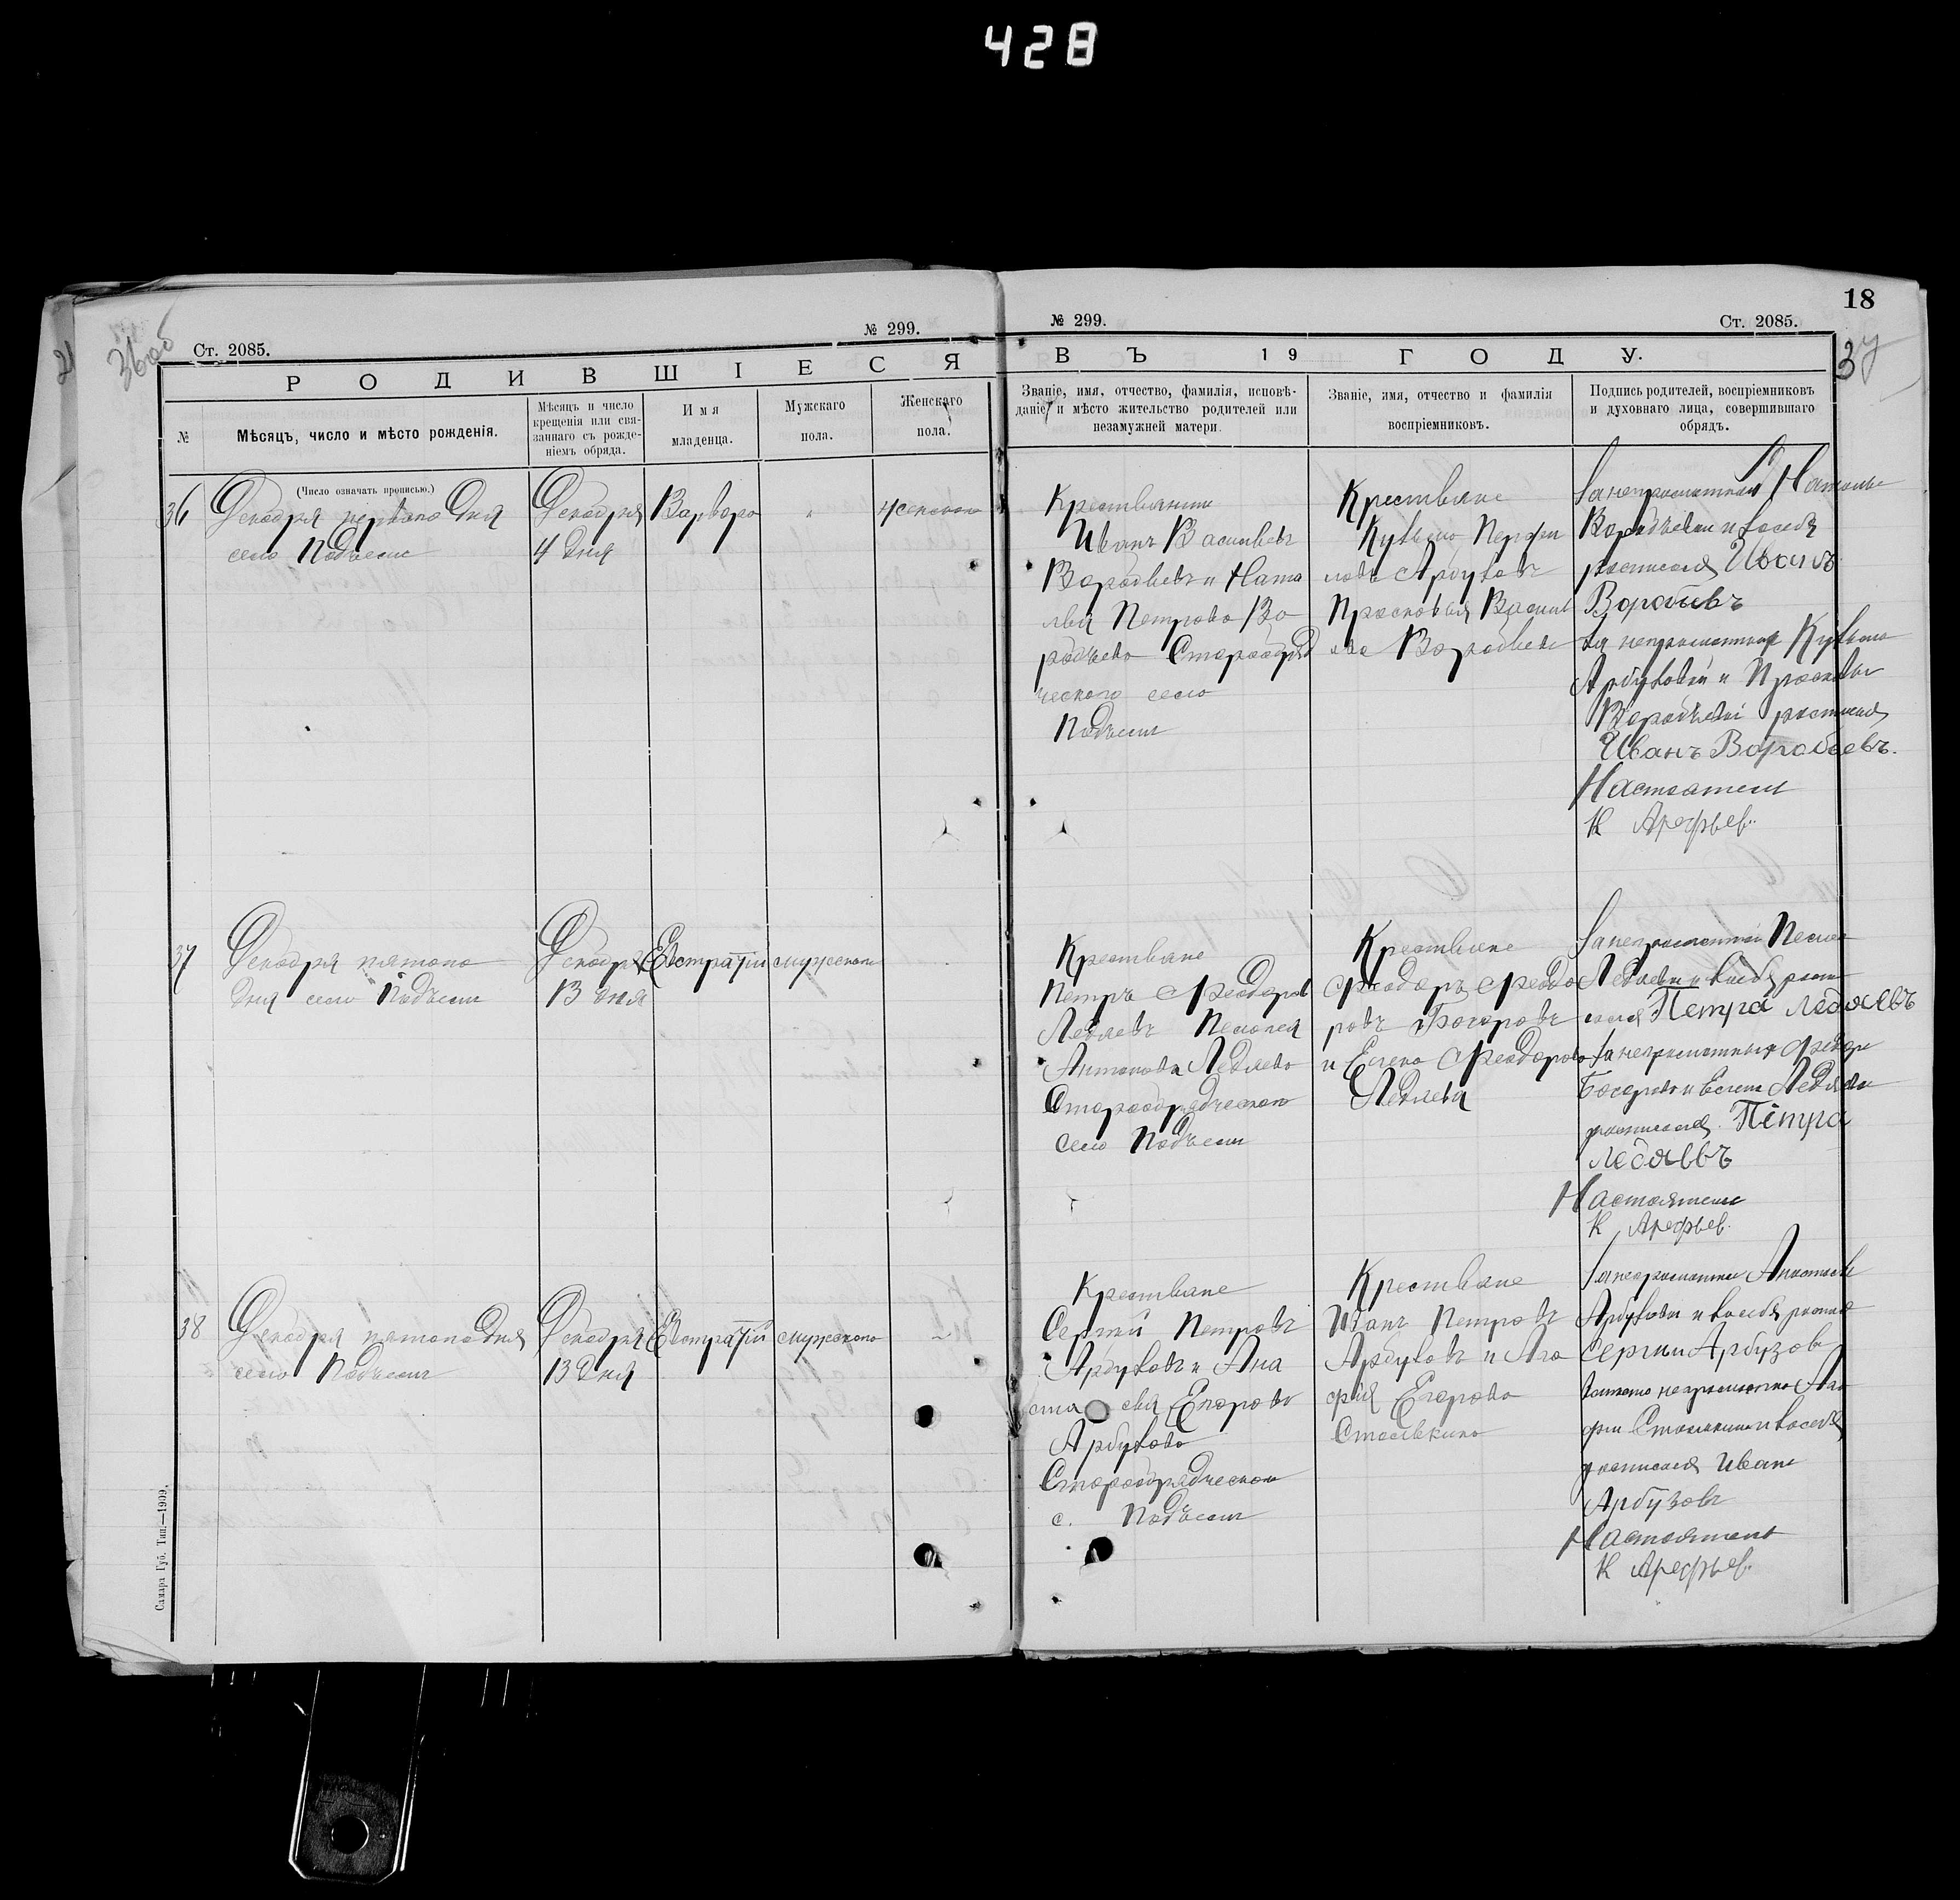 428
18
36 об
37
Ст. 2085.
№ 299.
№ 299.
Ст. 2085.
РОДИВШІЕСЯ
ВЪ 19 ГОДУ.
№
Мѣсяцъ, число и мѣсто рожденія.
Мѣсяцъ и число
крещенія или свя-
заннаго съ рожде-
ніемъ обряда.
Имя
младенца.
Мужскаго
пола.
Женскаго
пола.
Званіе, имя, отчество, фамилія, исповѣ-
даніе и мѣсто жительство родителей или
незамужней матери.
Званіе, имя, отчество и фамилія
воспріемниковъ.
Подпись родителей, воспріемниковъ
и духовнаго лица, совершившаго
обрядъ.
(Число означать прописью.)
36
Декабря первого дня
село Подъеми
Декабря
4 дня
Варвара
женскаго
Крестьянин
Иванъ Васильевъ
Воробьевъ и Ната
лья Петрова Во
робьева Старообряд
ческого село
Подъеми
Крестьяне
Кузьма
Арбузовъ
Прасковья Василь
ева Воробьева
Занеграмотной Наталье
Воробьевой и за себя
росписался Иванъ
Воробьевъ
За неграмотных Кузьмо
Арбузовой и Прасковьи
Воробьевой росписался
Иванъ Воробьевъ.
Настоятель
К Арефьев.
37
Декабря пятого
дня село Подъеми
Декабря
13 дня
Евстратий
мужского
Крестьяне
Петръ Феодоров
Ледяевъ Пелагея
Антонова Ледяева
Старообрядческого
село Подъеми
Крестьяне
Феодоръ Феодо
ровъ
и Елена Феодорова
Ледяева
Занеграмотной
Ледяевой и за себя роспи
сался Петра Ледяевъ
За неграмотных Феодора
и Елены Ледяевой
росписался Петра
Ледяевъ
Настоятель
К Арефьев.
38
Декабря пятого дня
село Подъеми
Декабря
13 дня
Евстратий
мужского
Крестьяне
Сергей Петровъ
Арбузовъ и Ана
стасья Егорова
Арбузова
Старообрядческого
с. Подъеми
Крестьяне
Иванъ Петровъ
Арбузовъ и Ага
фия Егорова
Занеграмотной Анастасьи
Арбузовой и за себя росписа
Сергии Арбузов
неграмотной Ага
фии и за себя
росписался Иванъ
Арбузовъ
Настоятель
К Арефьев.
Самара Губ. Тип.—1909.